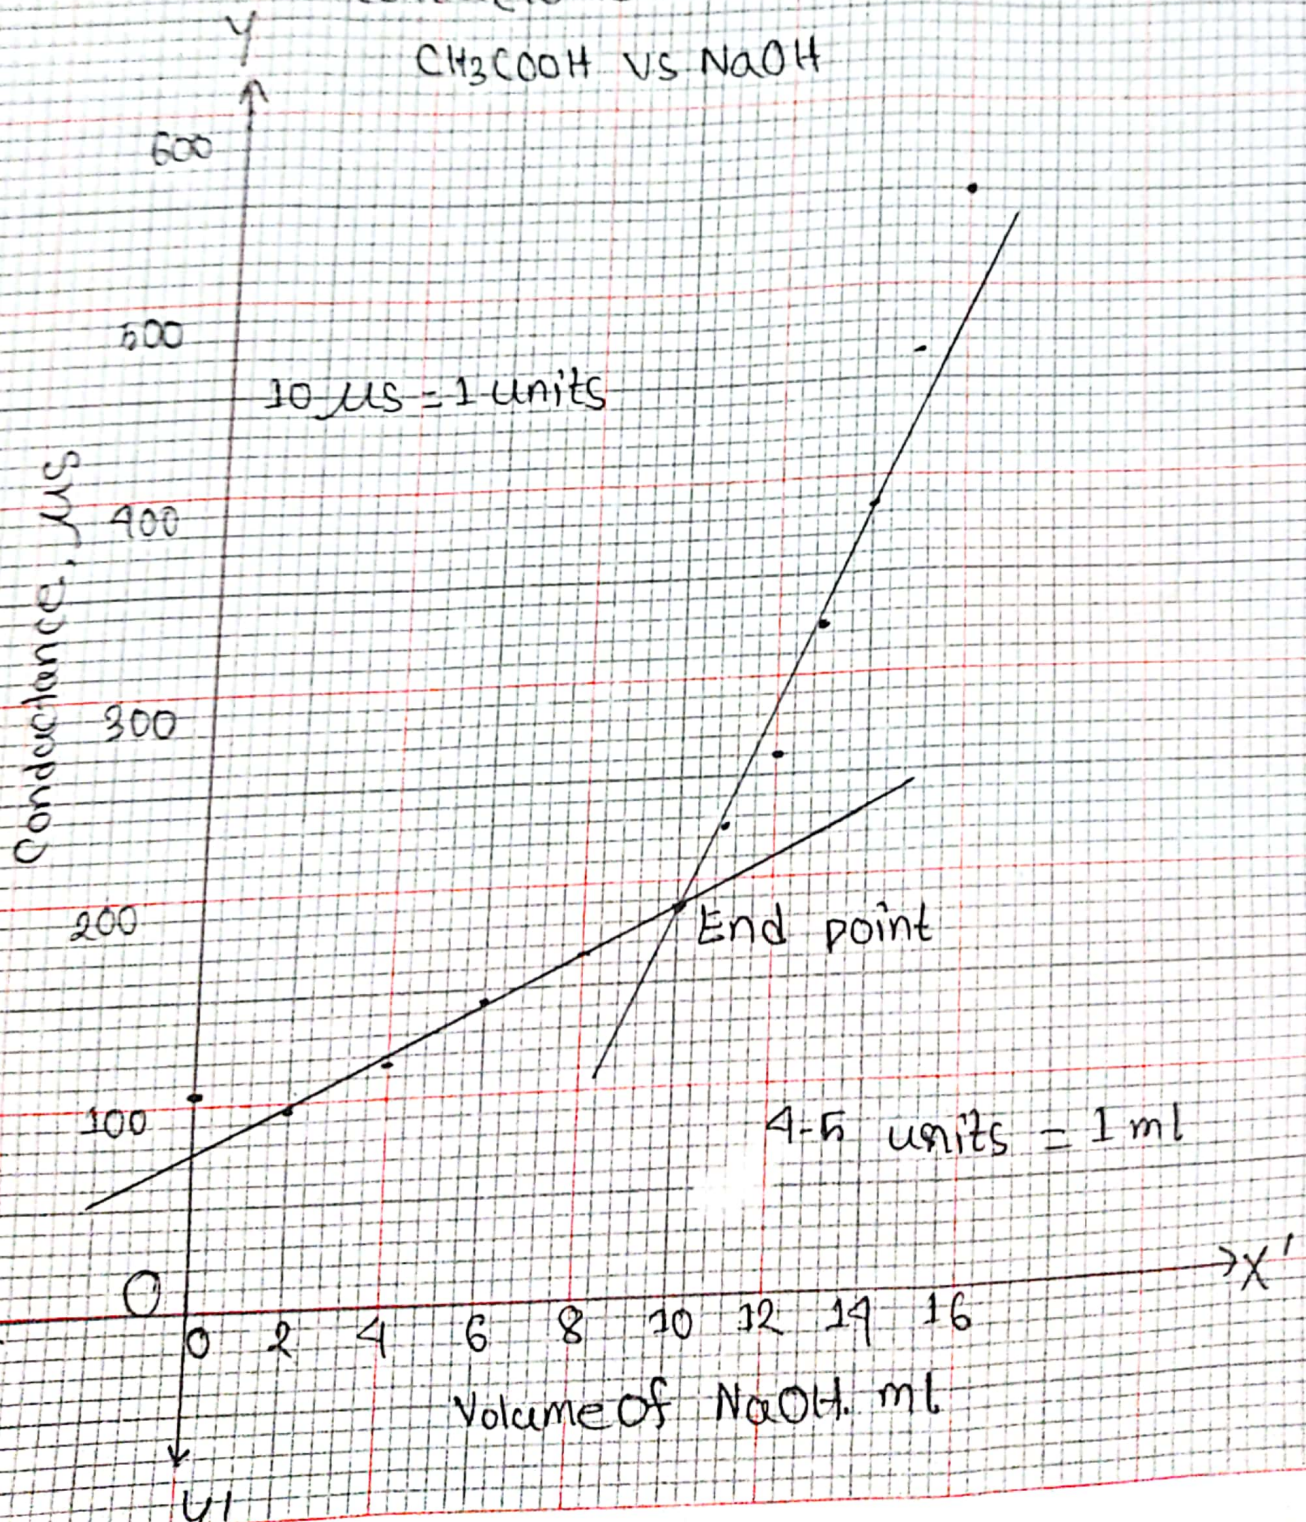 Y
CH3COOH VS NaOH
600
500
10 μs = 1 units
400
Conductance, μs
300
200
End point
100
4-5 units = 1 ml
O
X'
0 2 4 6 8 10 12 14 16
Volume Of NaOH. ml
y1